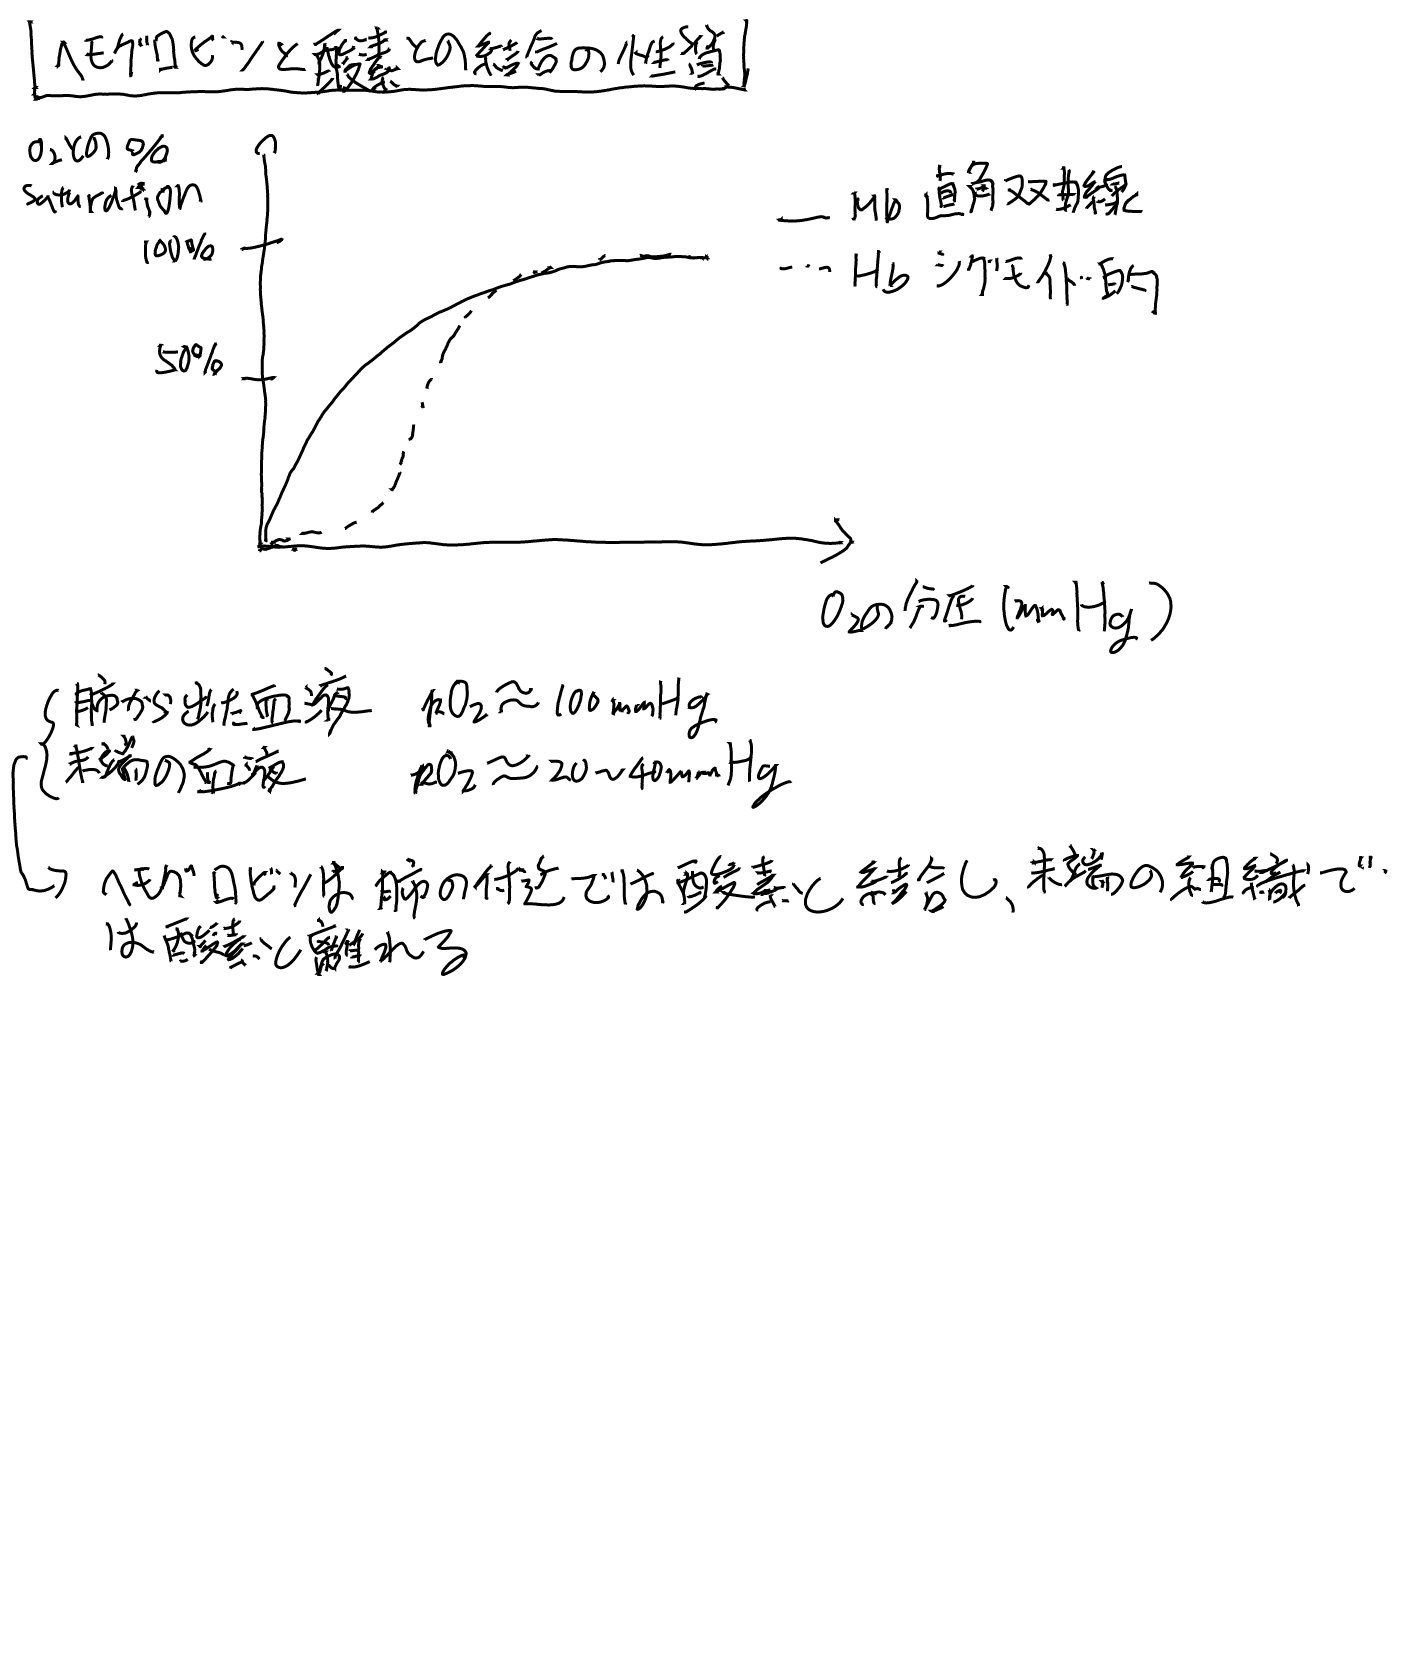 ヘモグロビンと酸素との結合の性質
O₂との%
saturation
100%
50%
Mb 直角双曲線
Hb シグモイド的
O₂の分圧 (mmHg)
肺から出た血液 pO₂≈100mmHg
末端の血液 pO₂≈20~40mmHg
→ ヘモグロビンは肺の付近では酸素と結合し、末端の組織で
は酸素と離れる